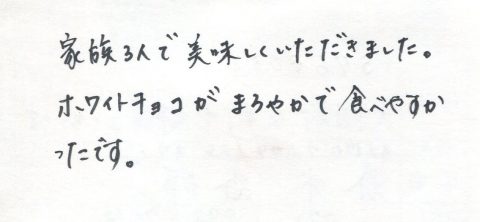 家族3人で美味しくいただきました。
ホワイトチョコがまろやかで食べやすか
ったです。